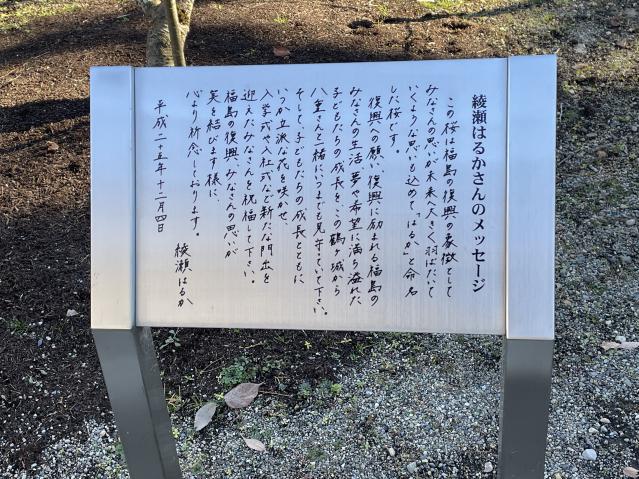 綾瀬はるかさんのメッセージ
この桜は福島の復興の象徴として
みなさんの思いが未来へ大きく羽ばたいて
いくような思いも込めて「はるか」と命名
した桜です。
復興への願い、復興に励まれる福島の
みなさんの生活、夢や希望に満ち溢れた
子どもたちの成長をこの鶴ヶ城から
八重さんと一緒にいつまでも見守っていて下さい。
そして、子どもたちの成長とともに
いつか立派な花を咲かせ、
入学式や入社式など新たな門出を
迎えたみなさんを祝福して下さい。
福島の復興、みなさんの思いが
実を結びます様に、
心より祈念しております。
平成二十五年十二月四日
綾瀬はるか